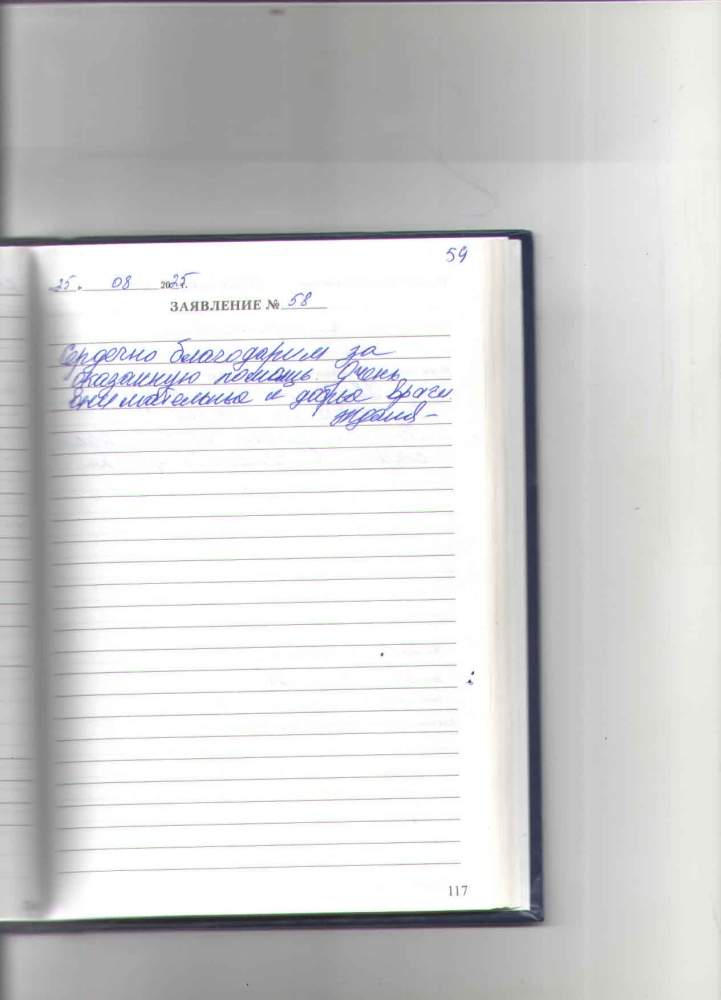 59
25. 08 2025г.
ЗАЯВЛЕНИЕ № 58
Сердечно благодарим за
оказанную помощь. Очень
внимательны и добры врачи
117